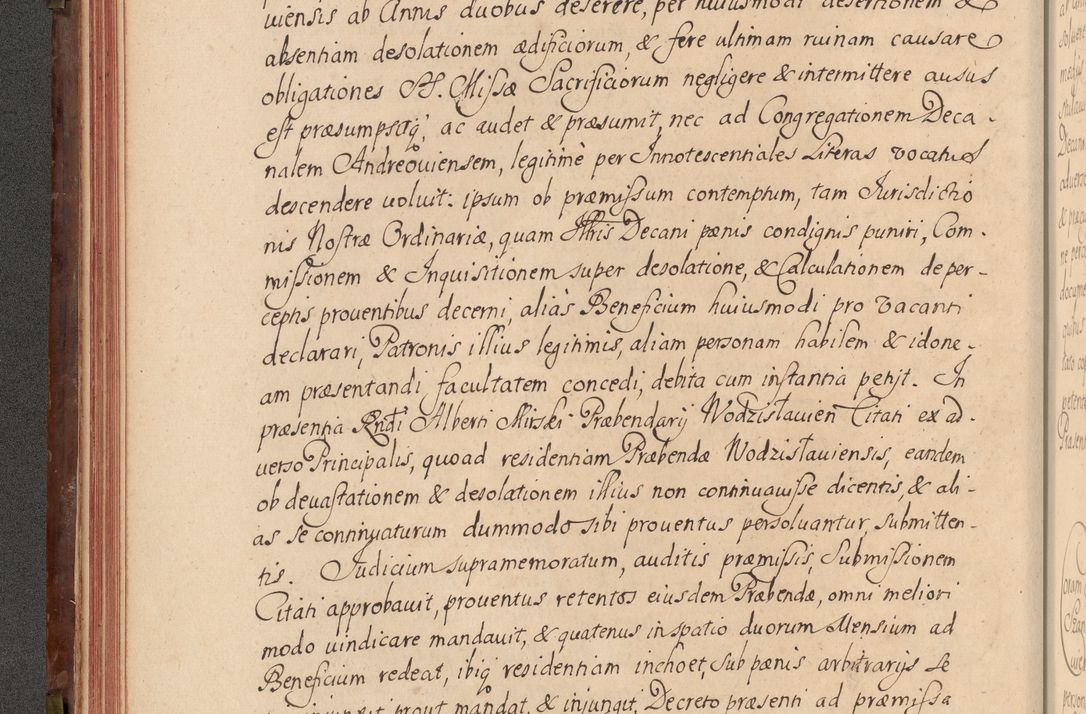 uiensis ab Annis duobus deserere, per huiusmodi desertionem &
absentiam desolationem ædificiorum, & fere ultimam ruinam causare
obligationes SS. Missæ Sacrificiorum negligere & intermittere ausus
est præsumpsitq, ac audet & præsumit, nec ad Congregationem Deca-
nalem Andreouiensem, legitimè per Innotescentiales Literas vocatus
descendere uoluit: ipsum ob præmissum contemptum, tam Jurisdictio
nis Nostræ Ordinariæ, quam Illris Decani pænis condignis puniri, Com-
missionem & Inquisitionem super desolatione, & Calculationem de per-
ceptis prouentibus decerni, aliàs Beneficium huiusmodi pro vacanti
declarari, Patronis illius legitimis, aliam personam habilem & idone-
am præsentandi facultatem concedi, debita cum instantia petijt. In
præsentia Rndi Alberti Mirski Præbendarij Wodzislauien Citati ex ad-
uerso Principalis, quoad residentiam Præbendæ Wodzislauiensis, eandem
ob deuastationem & desolationem illius non continuauisse dicentis, & ali-
as se continuaturum dummodo sibi prouentus persoluantur, submitten-
tis. Judicium supramemoratum, auditis præmissis, Submissionem
Citati approbauit, prouentus retentos eiusdem Præbendæ, omni meliori
modo uindicare mandauit, & quatenus in spatio duorum Mensium ad
Beneficium redeat, ibiq residentiam inchoet, sub pænis arbitrarijs se
prout mandat, & injungit, Decreto præsenti ad præmissa